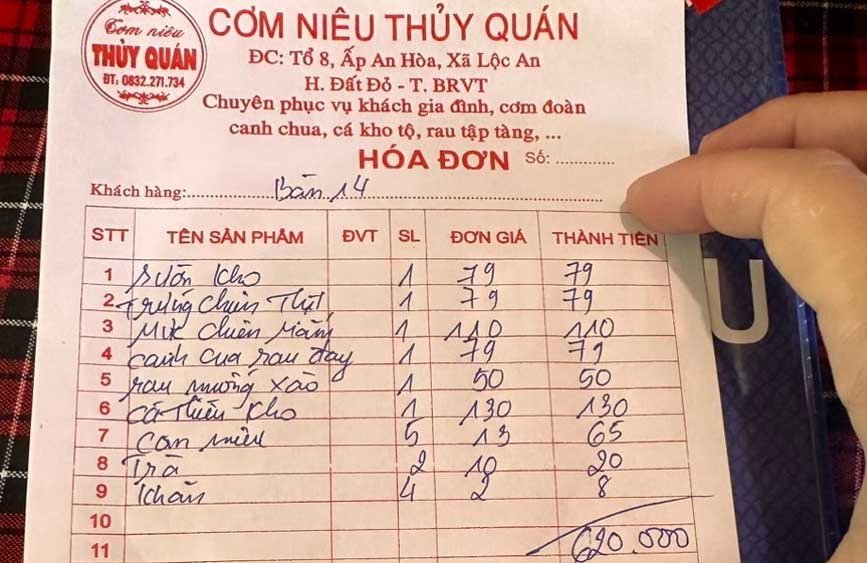 Cơm niêu
THỦY QUÁN
ĐT: 0832.271.734
CƠM NIÊU THỦY QUÁN
ĐC: Tổ 8, Ấp An Hòa, Xã Lộc An
H. Đất Đỏ - T. BRVT
Chuyên phục vụ khách gia đình, cơm đoàn
canh chua, cá kho tộ, rau tập tàng, ...
HÓA ĐƠN Số: ..............
Khách hàng: Bàn 14
STT TÊN SẢN PHẨM ĐVT SL ĐƠN GIÁ THÀNH TIỀN
1 sườn kho 1 79 79
2 trứng chiên Thịt 1 79 79
3 Mực chiên mắm 1 110 110
4 canh cua rau đay 1 79 79
5 rau muống xào 1 50 50
6 cá Thiều kho 1 130 130
7 cơm niêu 5 13 65
8 Trà 2 10 20
9 khăn 4 2 8
10
11 620.000
U